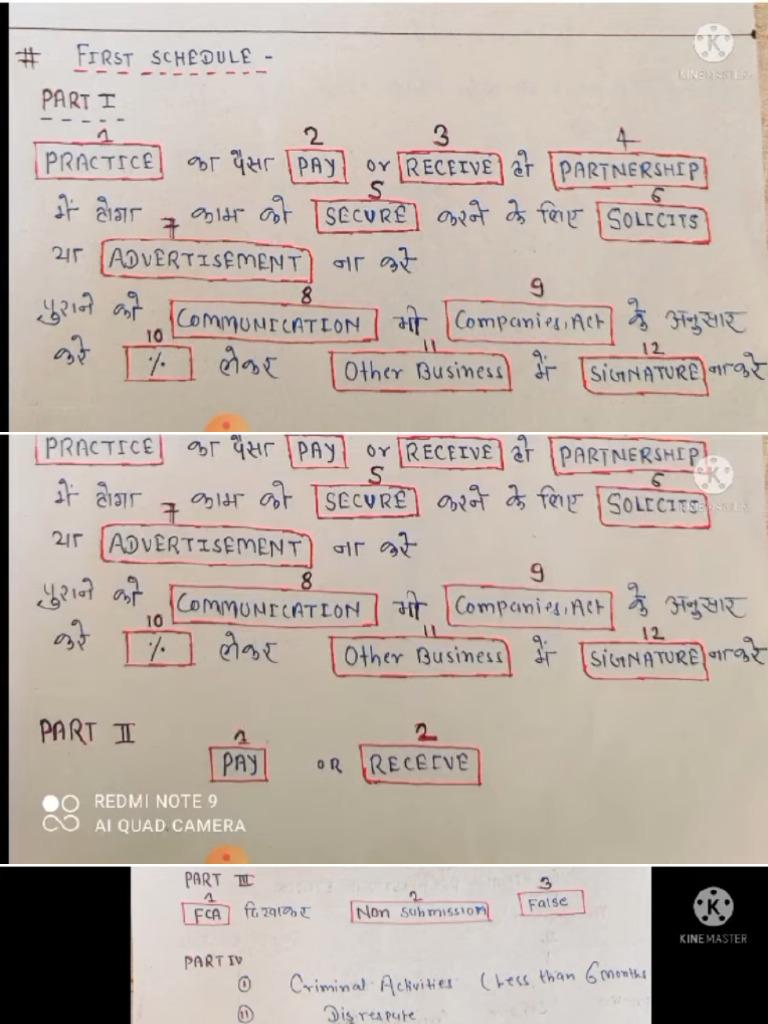 # FIRST SCHEDULE -
KINEMASTER
PART I
1 2 3 4
PRACTICE का पैसा PAY or RECEIVE हो PARTNERSHIP
5 6
में होगा 7 काम को SECURE करने के लिए SOLICITS
या ADVERTISEMENT ना करे
8 9
पुराने को COMMUNICATION भी Companies, Act के अनुसार
10 11 12
करे % लेकर Other Business में SIGNATURE ना करे
PRACTICE का पैसा PAY or RECEIVE हो PARTNERSHIP
5 6
में होगा 7 काम को SECURE करने के लिए SOLICITS
या ADVERTISEMENT ना करे
8 9
पुराने को COMMUNICATION भी Companies, Act के अनुसार
10 11 12
करे % लेकर Other Business में SIGNATURE ना करे
PART II 1 2
PAY OR RECEIVE
REDMI NOTE 9
AI QUAD CAMERA
PART III
1 2 3
FCA दिखाकर Non submission False
KINEMASTER
PART IV
(i) Criminal Activities (Less than 6 months
(ii) Disrespute